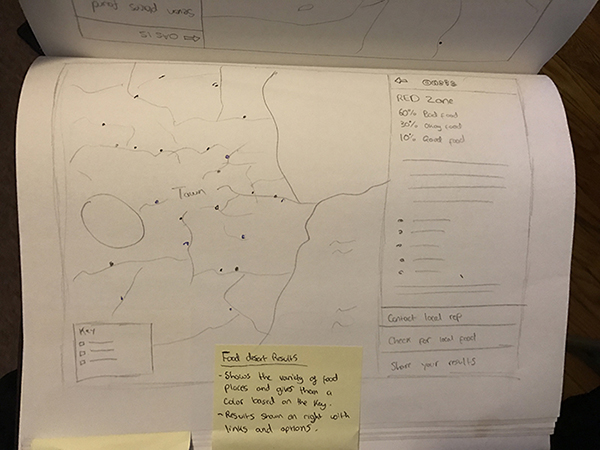 RED Zone
60% Bad food
30% Okay food
10% Good food
Town
Key
Contact local rep
Check for local food
Share your results
Food desert Results
- Shows the variety of food
places and gives them a
color based on the Key.
- Results shown on right with
links and options.